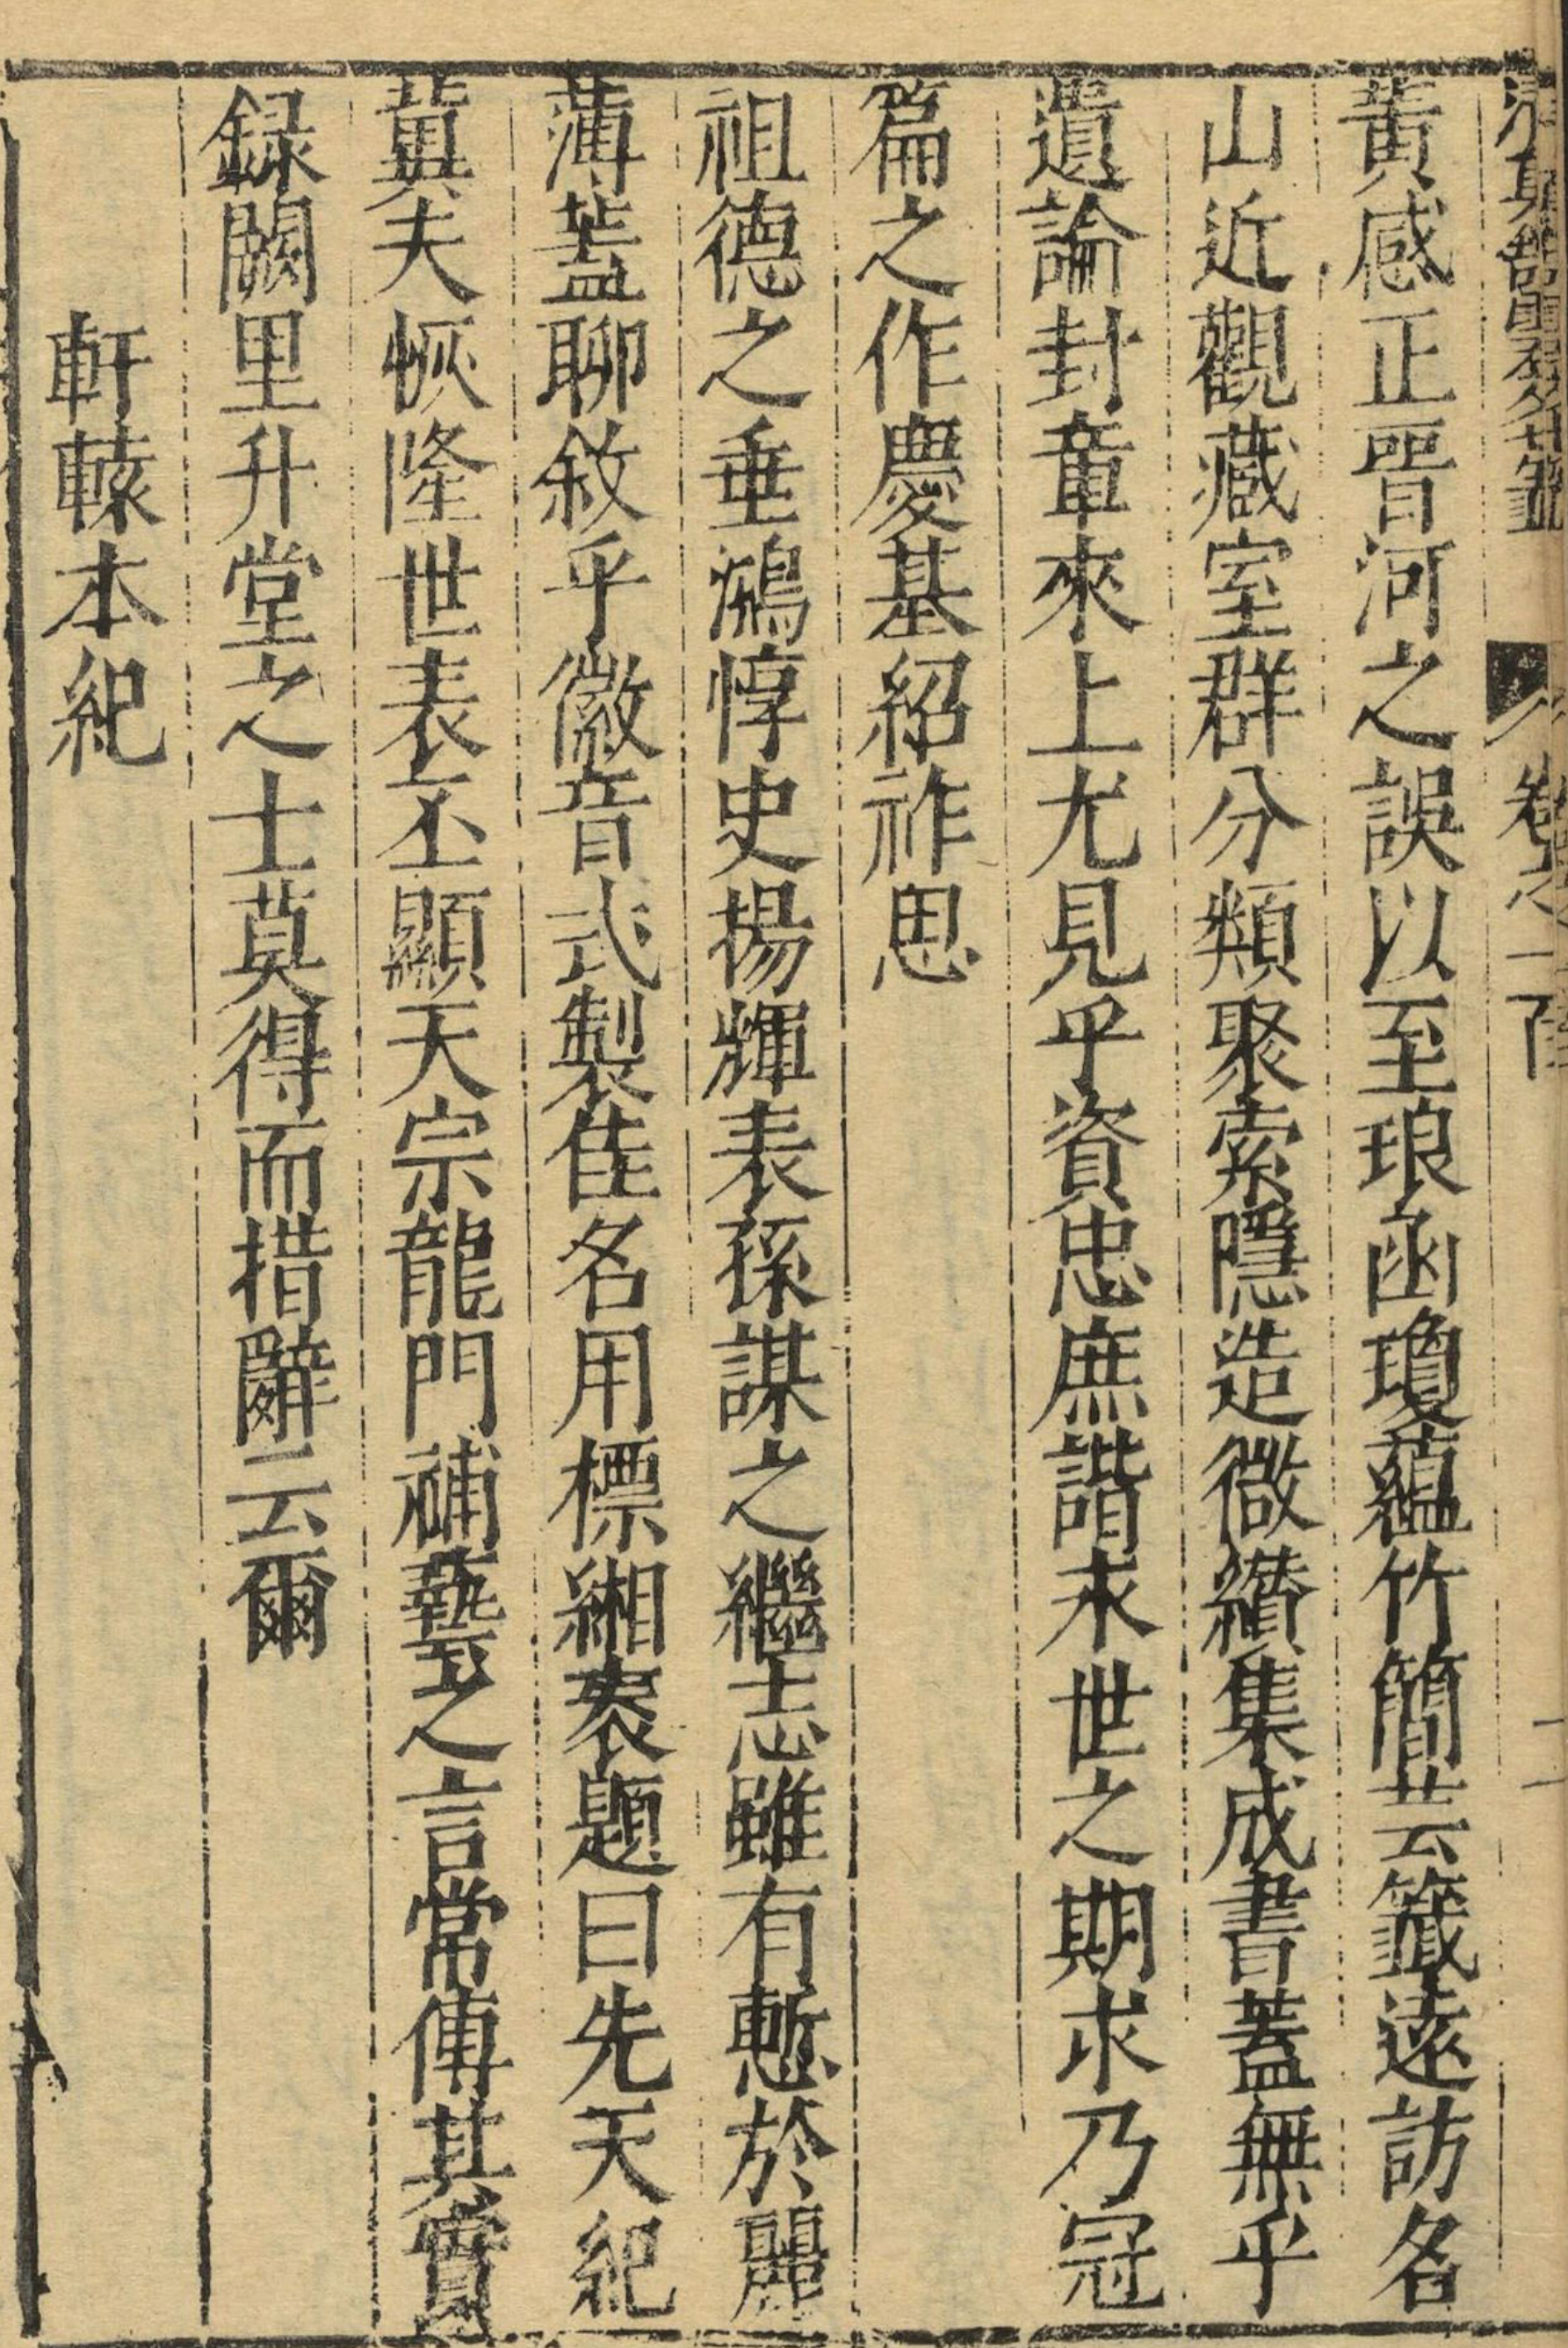 黃感正晉河之誤以至琅函瓊蘊竹簡芸籤遠訪名
山近觀藏室群分類聚索隱造微纘集成書蓋無乎
遺論封章來上尤見乎資忠庶諧永世之期求乃冠
篇之作慶基紹祚思
祖德之垂鴻惇史揚輝表孫謀之繼志雖有慙於麗
薄蓋聊敘乎徽音式製佳名用標緗袠題曰先天紀
冀夫恢隆世表丕顯天宗龍門補藝之言常傳其實
録闕里升堂之士莫得而措辭云爾
軒轅本紀